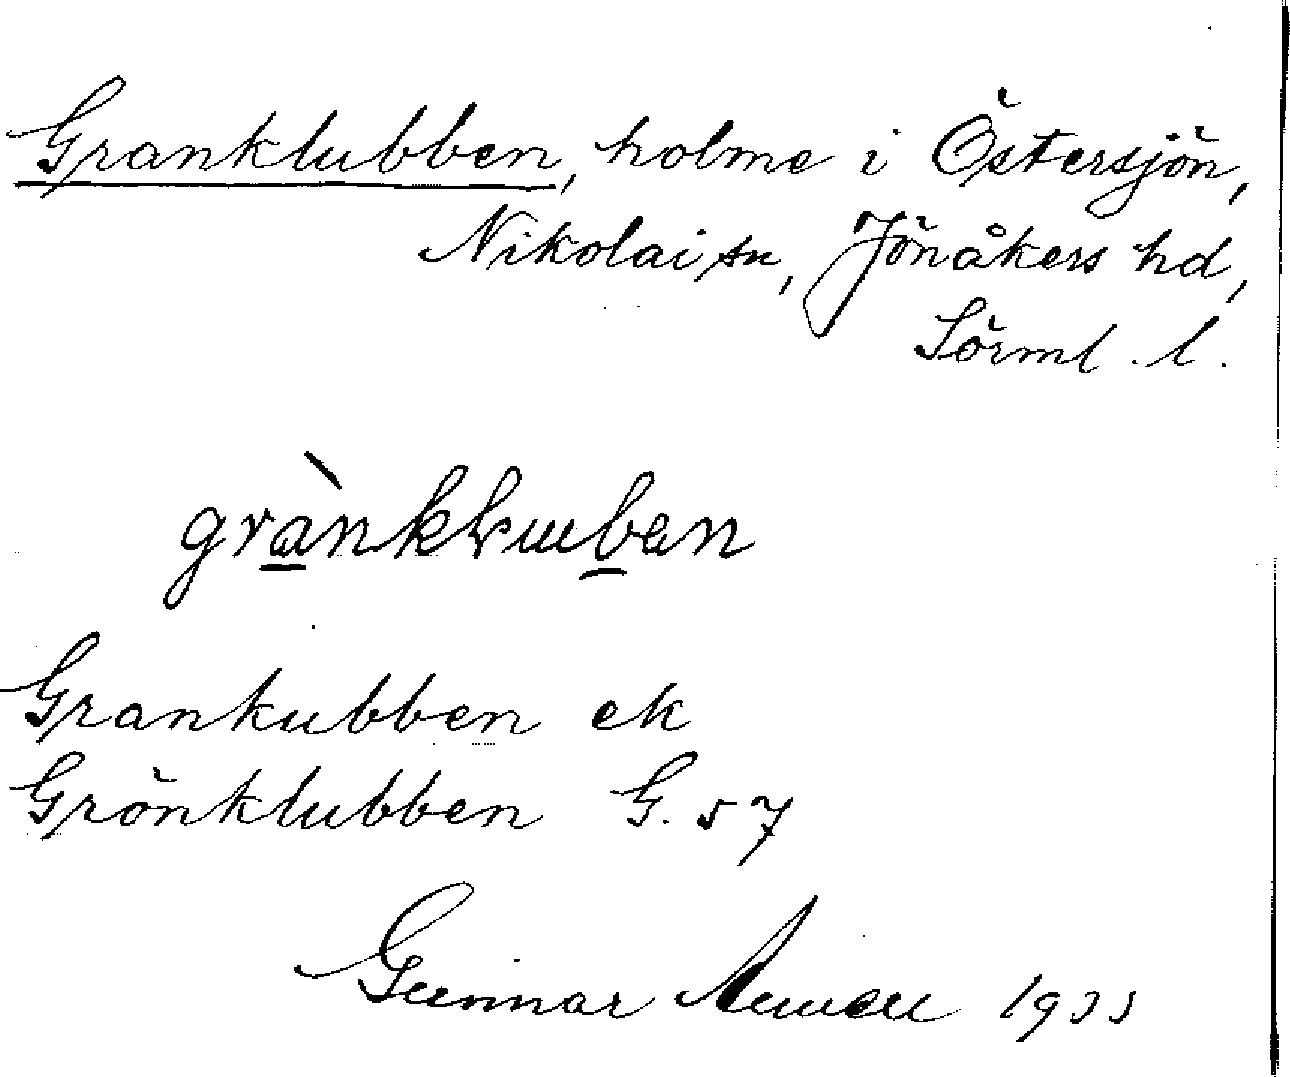 Granklubben, holme i Östersjön,
Nikolai sn, Jönåkers hd,
Sörml. l.
Grankubben ek
Grönklubben G. 57
Gunnar 1933